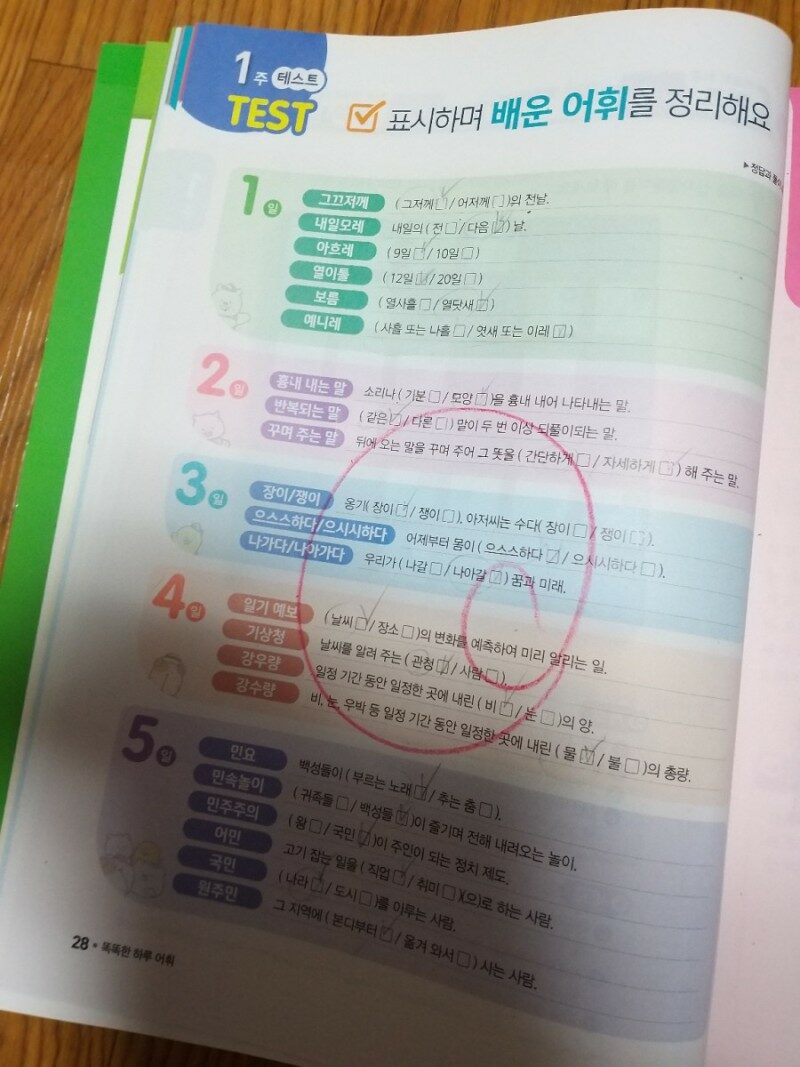 1주 테스트
TEST
표시하며 배운 어휘를 정리해요
▶ 정답과 풀이
1일
그끄저께 ( 그저께 ☑ / 어저께 ☐ )의 전날.
내일모레 내일의 ( 전 ☐ / 다음 ☑ ) 날.
아흐레 ( 9일 ☑ / 10일 ☐ )
열이틀 ( 12일 ☑ / 20일 ☐ )
보름 ( 열사흘 ☐ / 열닷새 ☑ )
예니레 ( 사흘 또는 나흘 ☐ / 엿새 또는 이레 ☑ )
2일
흉내 내는 말 소리나 ( 기분 ☐ / 모양 ☑ )을 흉내 내어 나타내는 말.
반복되는 말 ( 같은 ☑ / 다른 ☐ ) 말이 두 번 이상 되풀이되는 말.
꾸며 주는 말 뒤에 오는 말을 꾸며 주어 그 뜻을 ( 간단하게 ☐ / 자세하게 ☑ ) 해 주는 말.
3일
장이/쟁이 옹기( 장이 ☑ / 쟁이 ☐ ), 아저씨는 수다( 장이 ☐ / 쟁이 ☑ ).
으스스하다/으시시하다 어제부터 몸이 ( 으스스하다 ☑ / 으시시하다 ☐ ).
나가다/나아가다 우리가 ( 나갈 ☐ / 나아갈 ☑ ) 꿈과 미래.
4일
일기 예보 ( 날씨 ☑ / 장소 ☐ )의 변화를 예측하여 미리 알리는 일.
기상청 날씨를 알려 주는 ( 관청 ☑ / 사람 ☐ ).
강우량 일정 기간 동안 일정한 곳에 내린 ( 비 ☑ / 눈 ☐ )의 양.
강수량 비, 눈, 우박 등 일정 기간 동안 일정한 곳에 내린 ( 물 ☑ / 불 ☐ )의 총량.
5일
민요 백성들이 ( 부르는 노래 ☑ / 추는 춤 ☐ ).
민속놀이 ( 귀족들 ☐ / 백성들 ☑ )이 즐기며 전해 내려오는 놀이.
민주주의 ( 왕 ☐ / 국민 ☑ )이 주인이 되는 정치 제도.
어민 고기 잡는 일을 ( 직업 ☑ / 취미 ☐ )(으)로 하는 사람.
국민 ( 나라 ☑ / 도시 ☐ )를 이루는 사람.
원주민 그 지역에 ( 본디부터 ☑ / 옮겨 와서 ☐ ) 사는 사람.
28 • 똑똑한 하루 어휘